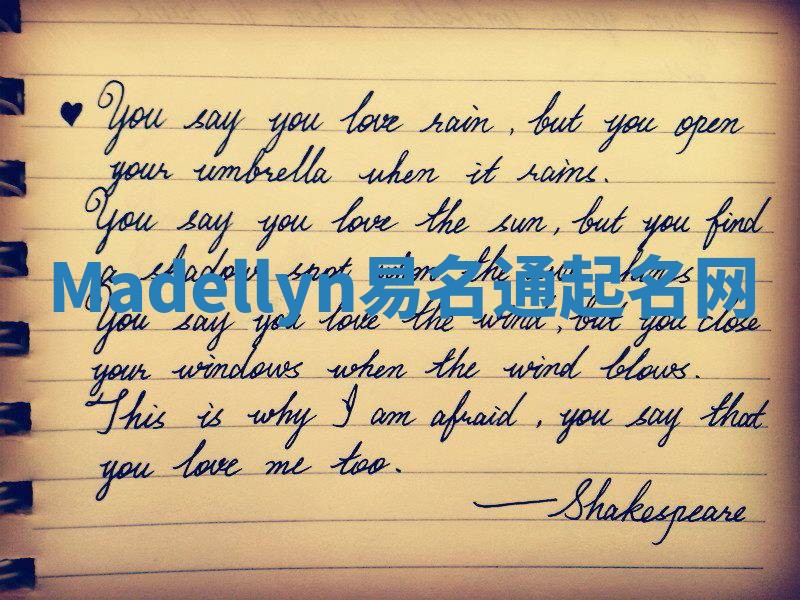 ♥ You say you love rain, but you open
your umbrella when it rains.
You say you love the sun, but you find
a shadow spot when the sun shines
Madellyn易名通起名网
You say you love the wind, but you close
your windows when the wind blows.
This is why I am afraid, you say that
you love me too.
—Shakespeare